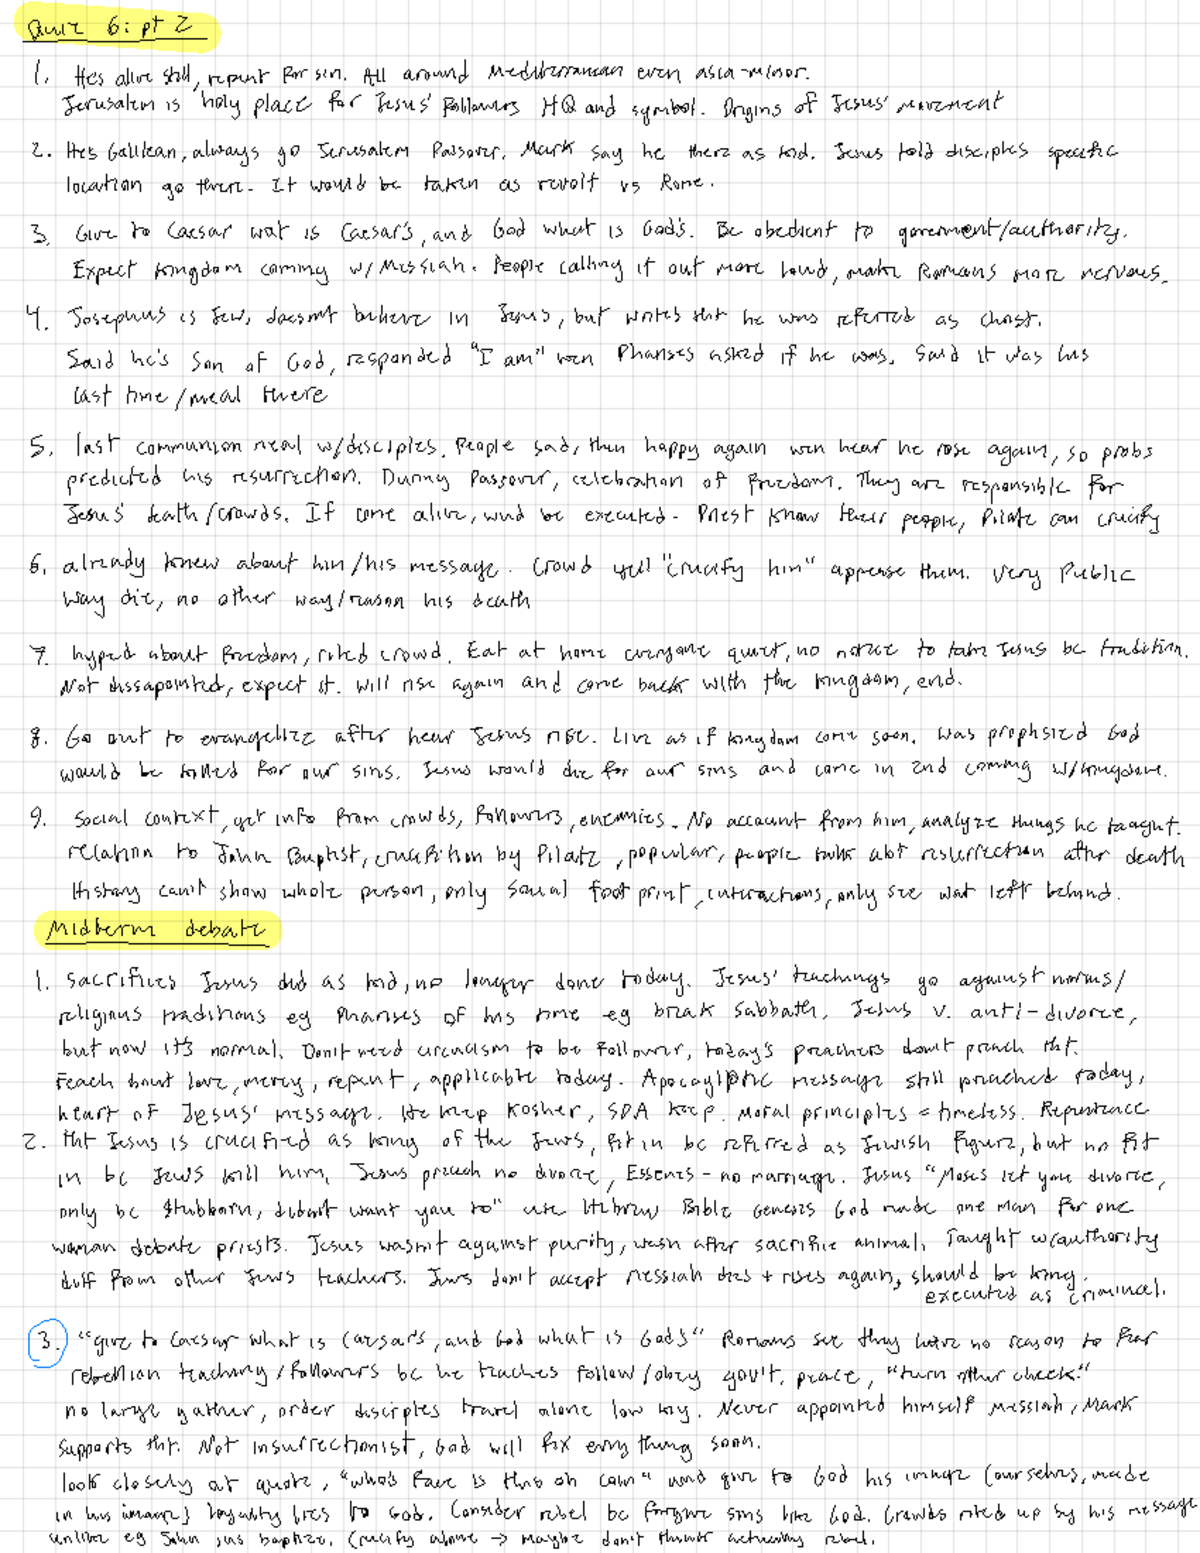 Quiz 6: pt 2
1. Hes alive still, repent for sin. All around Mediterranean even asia-minor.
Jerusalem is holy place for Jesus' followers HQ and symbol. Origins of Jesus' movement
2. Hes Galilean, always go Jerusalem Passover. Mark say he there as kid. Jesus told disciples specific
location go there. It would be taken as revolt vs Rome.
3. Give to Caesar wat is Caesar's, and God what is God's. Be obedient to government/authority.
Expect kingdom coming w/ Messiah. People calling it out more loud, make Romans more nervous.
4. Josephus is Jew, doesnt believe in Jesus, but writes tht he was referred as Christ.
Said he's Son of God, responded "I am" wen Pharises asked if he was. Said it was his
last time/meal there
5. last communion meal w/disciples. People sad, then happy again wen hear he rose again, so probs
predicted his resurrection. During Passover, celebration of freedom. They are responsible for
Jesus' death/crowds. If come alive, wud be executed. Priest know their people, Pilate can crucify
6. already knew about him/his message. Crowd yell "crucify him" appease them. Very Public
way die, no other way/reason his death
7. hyped about freedom, riled crowd. Eat at home everyone quiet, no notice to take Jesus bc tradition.
Not dissapointed, expect it. Will rise again and come back with the kingdom, end.
8. Go out to evangelize after hear Jesus rise. Live as if kingdom come soon. Was prophsized God
would be killed for our sins. Jesus would die for our sins and come in 2nd coming w/kingdom.
9. Social context, get info from crowds, followers, enemies. No account from him, analyze things he taught.
relation to John Baptist, crucifition by Pilate, popular, people talk abt resurrection after death
History can't show whole person, only social foot print, interactions, only see wat left behind.
Midterm debate
1. Sacrifices Jesus did as kid, no longer done today. Jesus' teachings go against norms/
religious traditions eg Pharises of his time eg break Sabbath. Jesus v. anti-divorce,
but now it's normal. Don't need circumcism to be follower, today's preachers don't preach tht.
Teach bout love, mercy, repent, applicable today. Apocaylptic message still preached today,
heart of Jesus' message. He keep Kosher, SDA keep. Moral principles = timeless. Repentance
2. Tht Jesus is crucified as king of the Jews, fit in bc referred as Jewish figure, but no fit
in bc Jews kill him. Jesus preach no divorce, Essenes - no marriage. Jesus "Moses let you divorce,
only bc stubborn, didn't want you to" use Hebrew Bible Genesis God made one man for one
woman debate priests. Jesus wasn't against purity, wash after sacrifice animal. Taught w/authority
diff from other Jews teachers. Jews don't accept messiah dies + rises again, should be king.
executed as criminal.
3. "give to Caesar what is Caesar's, and God what is God's" Romans see they have no reason to fear
rebellion teaching/followers bc he teaches follow/obey gov't, peace, "turn other cheek."
no large gather, order disciples travel alone low key. Never appointed himself messiah, Mark
supports tht. Not insurrectionist, God will fix everything soon.
look closely at quote, "who's face is this on coin" and give to God his image (ourselves, made
in his image) loyalty lies to God. Consider rebel bc forgive sins like God. Crowds riled up by his message
unlike eg John jus baptize. Crucify alone → maybe don't think actually rebel.